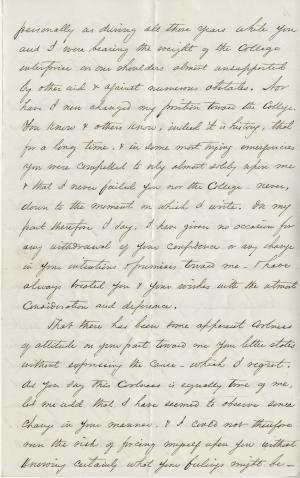 personally as during all those years while you
and I were bearing the weight of the College
enterprise on our shoulders almost unsupported
by other aid & against numerous obstacles. Nor
have I ever changed my position toward the College.
You know & others know, indeed it is history, that
for a long time, & in some most trying emergencies
you were compelled to rely almost solely upon me
& that I never failed you nor the College - never,
down to the moment in which I write. On my
part therefore I say, I have given no occasion for
any withdrawal of your confidence or any change
in your intentions & promises toward me - I have
always treated you & your wishes with the utmost
consideration and deference.
That there has been some apparent coolness
of attitude on your part toward me your letter states
without expressing the cause - which I regret.
As you say this coolness is equally true of me,
let me add that I have seemed to observe some
change in your manner, & I could not therefore
run the risk of forcing myself upon you without
knowing certainly what your feelings might be -